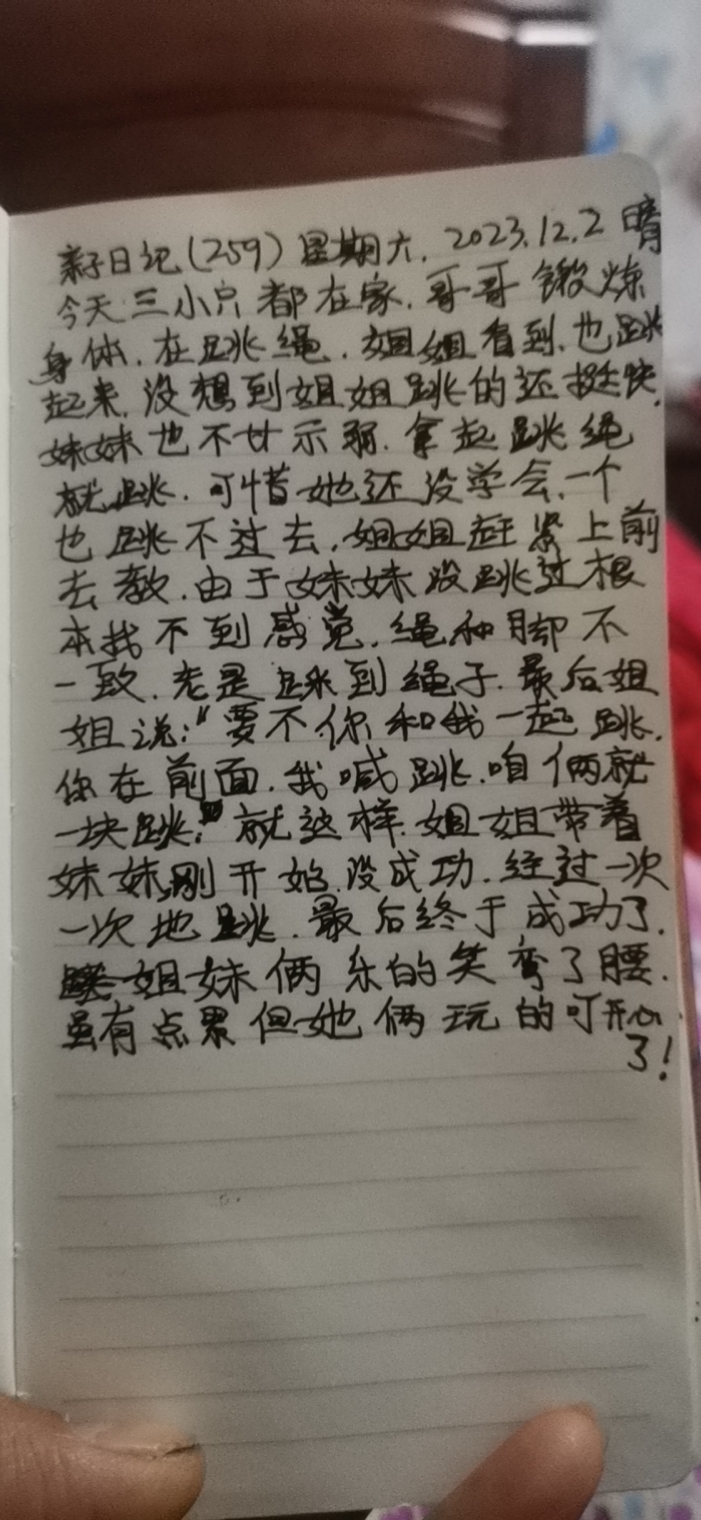 亲子日记(259)星期六.2023.12.2晴
今天三小只都在家.哥哥锻炼
身体.在跳绳.姐姐看到.也跳
起来.没想到姐姐跳的还挺快.
妹妹也不甘示弱.拿起跳绳
就跳.可惜她还没学会.一个
也跳不过去.姐姐赶紧上前
去教.由于妹妹没跳过根
本找不到感觉.绳和脚不
一致.老是踩到绳子.最后姐
姐说:“要不你和我一起跳.
你在前面.我喊跳.咱俩就
一块跳.”就这样.姐姐带着
妹妹.刚开始.没成功.经过一次
一次地跳.最后终于成功了.
姐妹俩乐的笑弯了腰.
虽有点累但她俩玩的可开心
了!